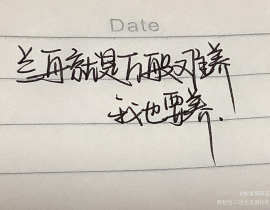 Date
兰再就是万般难养
我也要养.